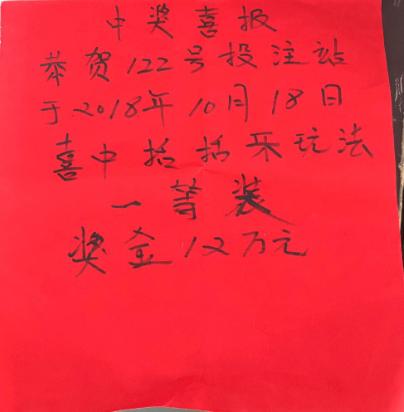 中奖喜报
恭贺122号投注站
于2018年10月18日
喜中括括乐玩法
一等装
奖金12万元